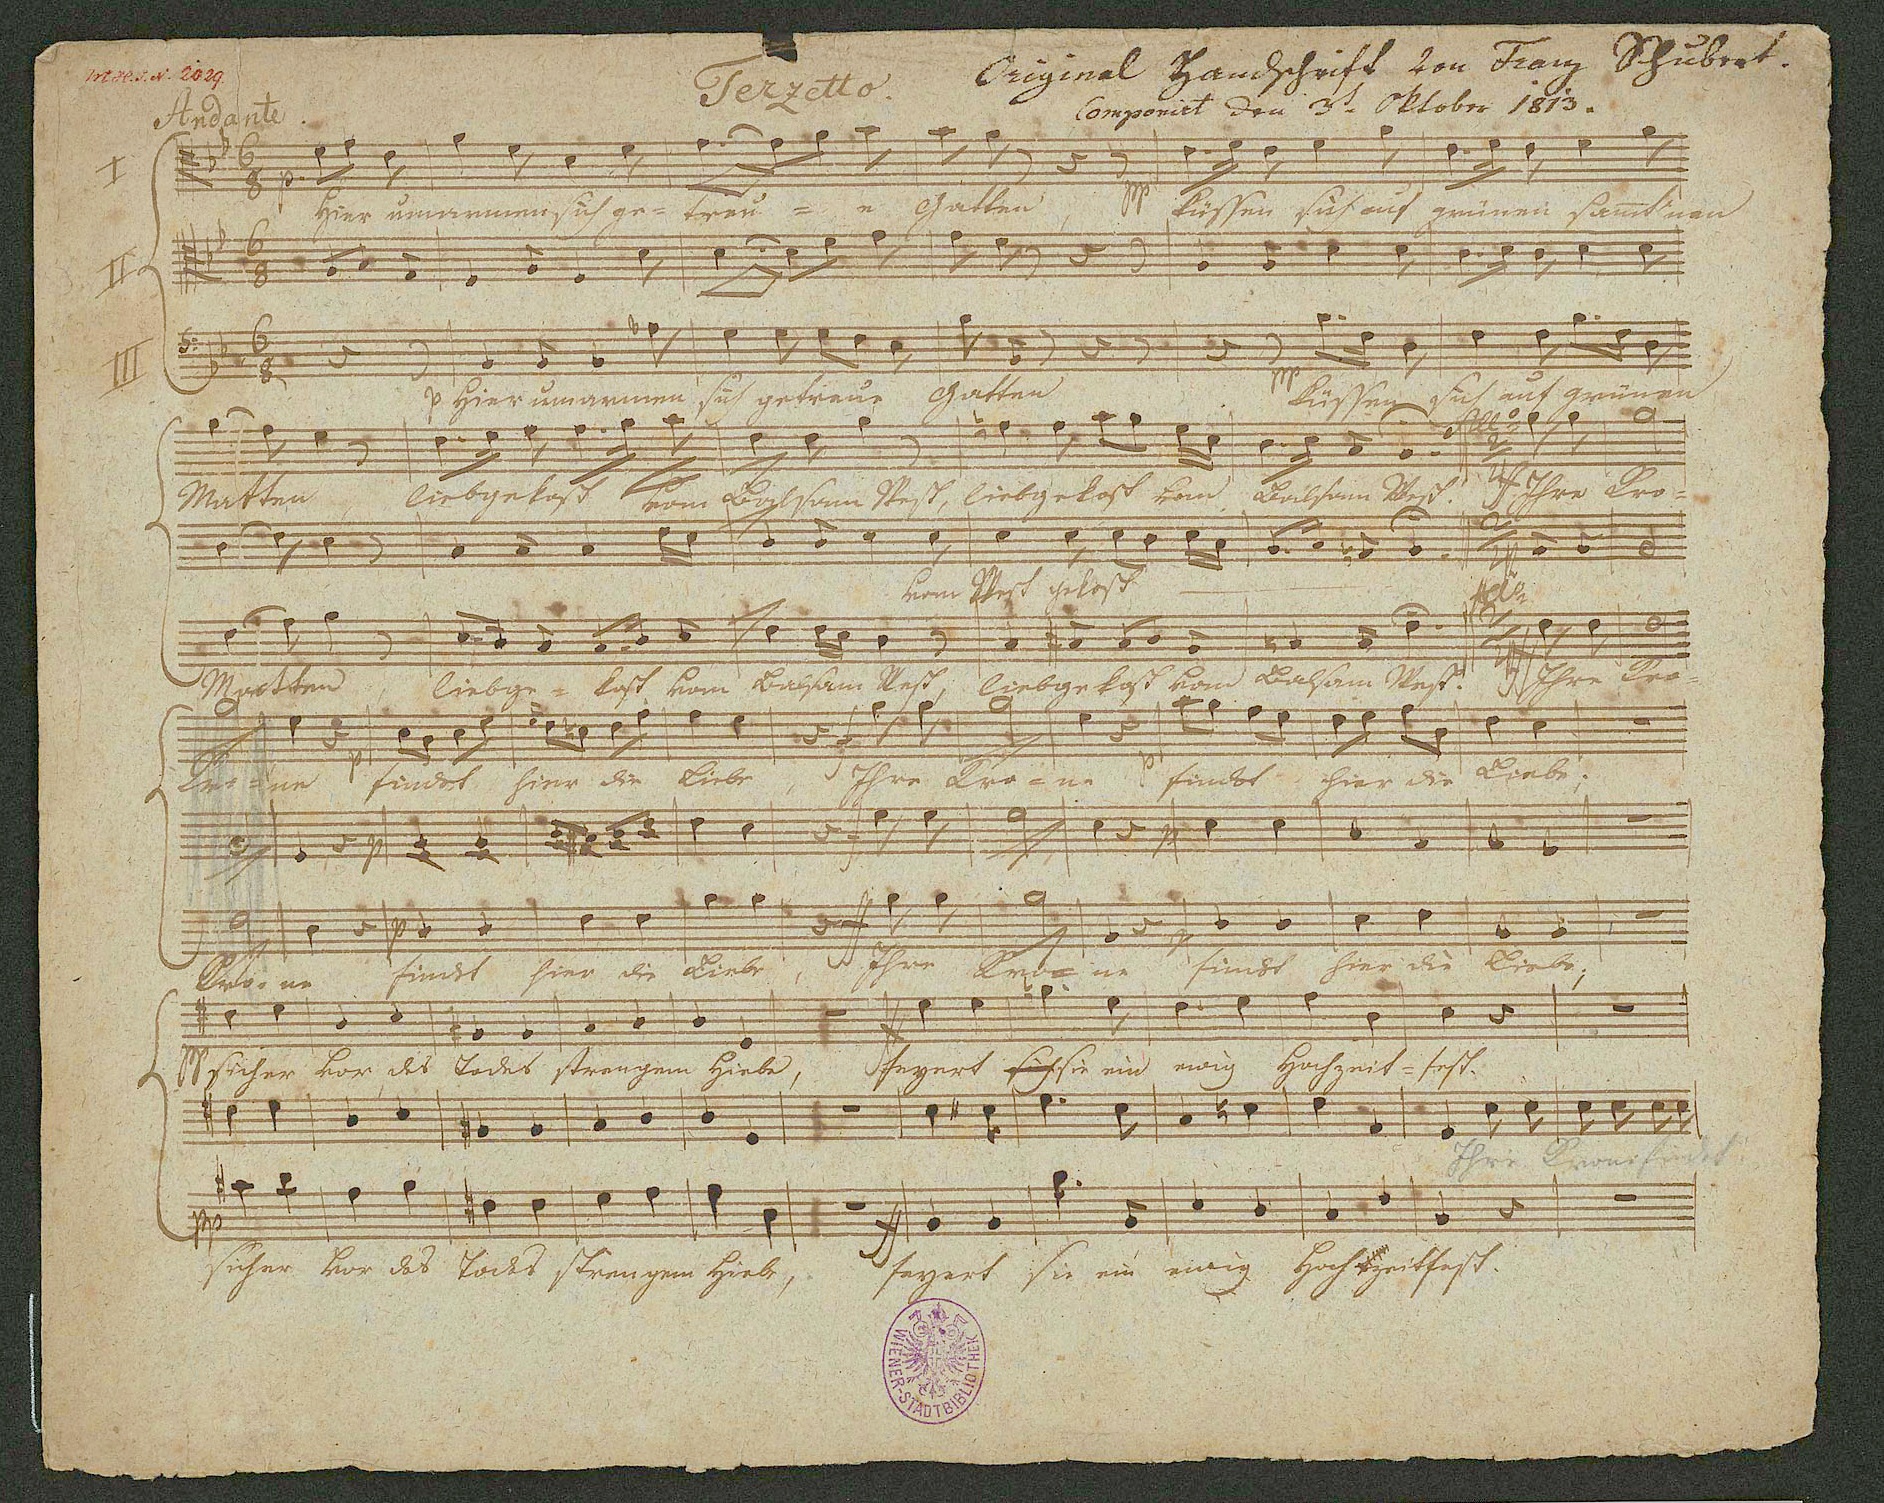 Terzetto.
Original Handschrift von Franz Schubert.
Componirt den 3t. Oktober 1813.
Andante.
I
6 8 p.
Hier umarmen sich ge= treu = e Gatten, pp küssen sich auf grünen samt'nen
II
6 8
III
6 8
p Hier umarmen sich getreue Gatten pp küssen sich auf grünen
All.o
Matten, liebgekost vom Balsam West, liebgekost vom Balsam West. ff Ihre Kro=
vom West gekost
All.o
Matten, liebge = kost vom Balsam West, liebgekost vom Balsam West. ff Ihre Kro=
Kro = ne p findet hier die Liebe, f Ihre Kro = ne p findet hier die Liebe;
p f p
Kro = ne p findet hier die Liebe, ff Ihre Kro = ne p findet hier die Liebe;
pp sicher vor des Todes strengem Hiebe, ff feyert sie ein ewig Hochzeit = fest.
Ihre Krone findet
pp ff
sicher vor des Todes strengem Hiebe, feyert sie ein ewig Hochzeitfest.
WIENER-STADTBIBLIOTHEK